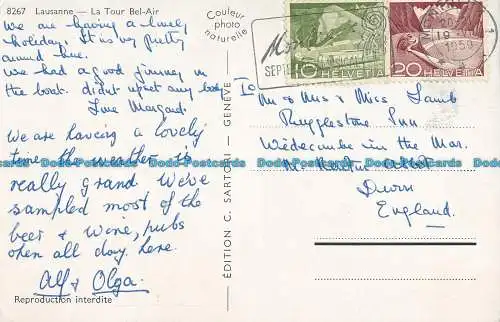 8267 Lausanne — La Tour Bel-Air
We are having a lovely
holiday. It is very pretty
around here.
We had a good journey in
the boat. didnt upset any body
Love Margaret.
We are having a lovely
time the weather is
really grand We've
sampled most of the
beer & wine, pubs
open all day here.
Alf & Olga.
Reproduction interdite
Couleur
photo
naturelle
ÉDITION C. SARTORI — GENÈVE
SEPT
10 HELVETIA
20 HELVETIA
19
1959
To
Mr & Mrs & Miss Lamb
Rugglestone Inn
Widecombe in the Moor
Nr. Newton Abbot
Devon
England.
Dodo-Postcards Dodo-Postcards Dodo-Postcards Dodo-Postcards